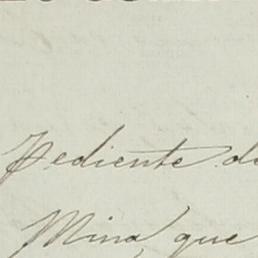 pediente de
Mina, que